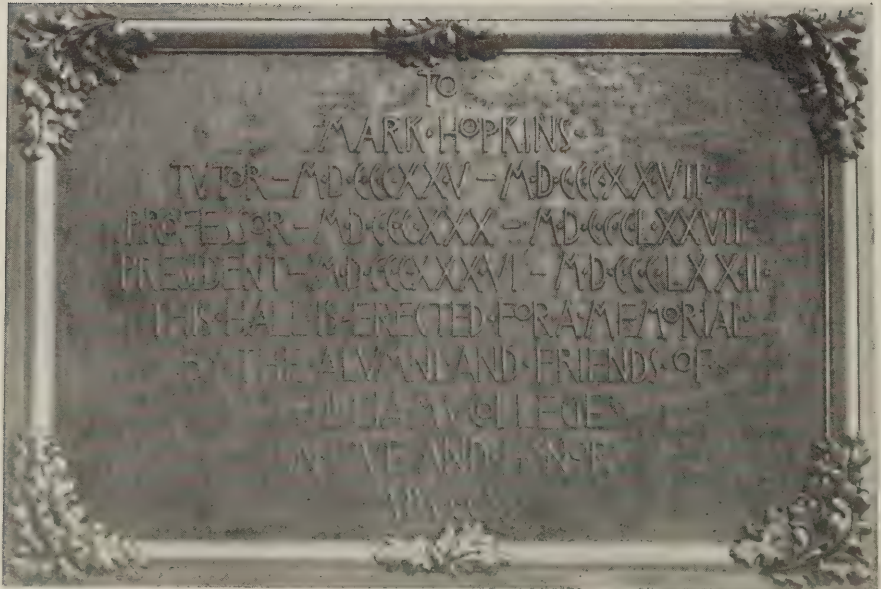 TO
MARK·HOPKINS·
TVTOR–MD·CCCXXV–MD·CCCXXVII·
PROFESSOR–MD·CCCXXX–MD·CCCLXXVII·
PRESIDENT–MD·CCCXXXVI–MD·CCCLXXII·
THIS·HALL·IS·ERECTED·FOR·A·MEMORIAL·
BY·THE·ALVMNI·AND·FRIENDS·OF·
COLLEGE
AND